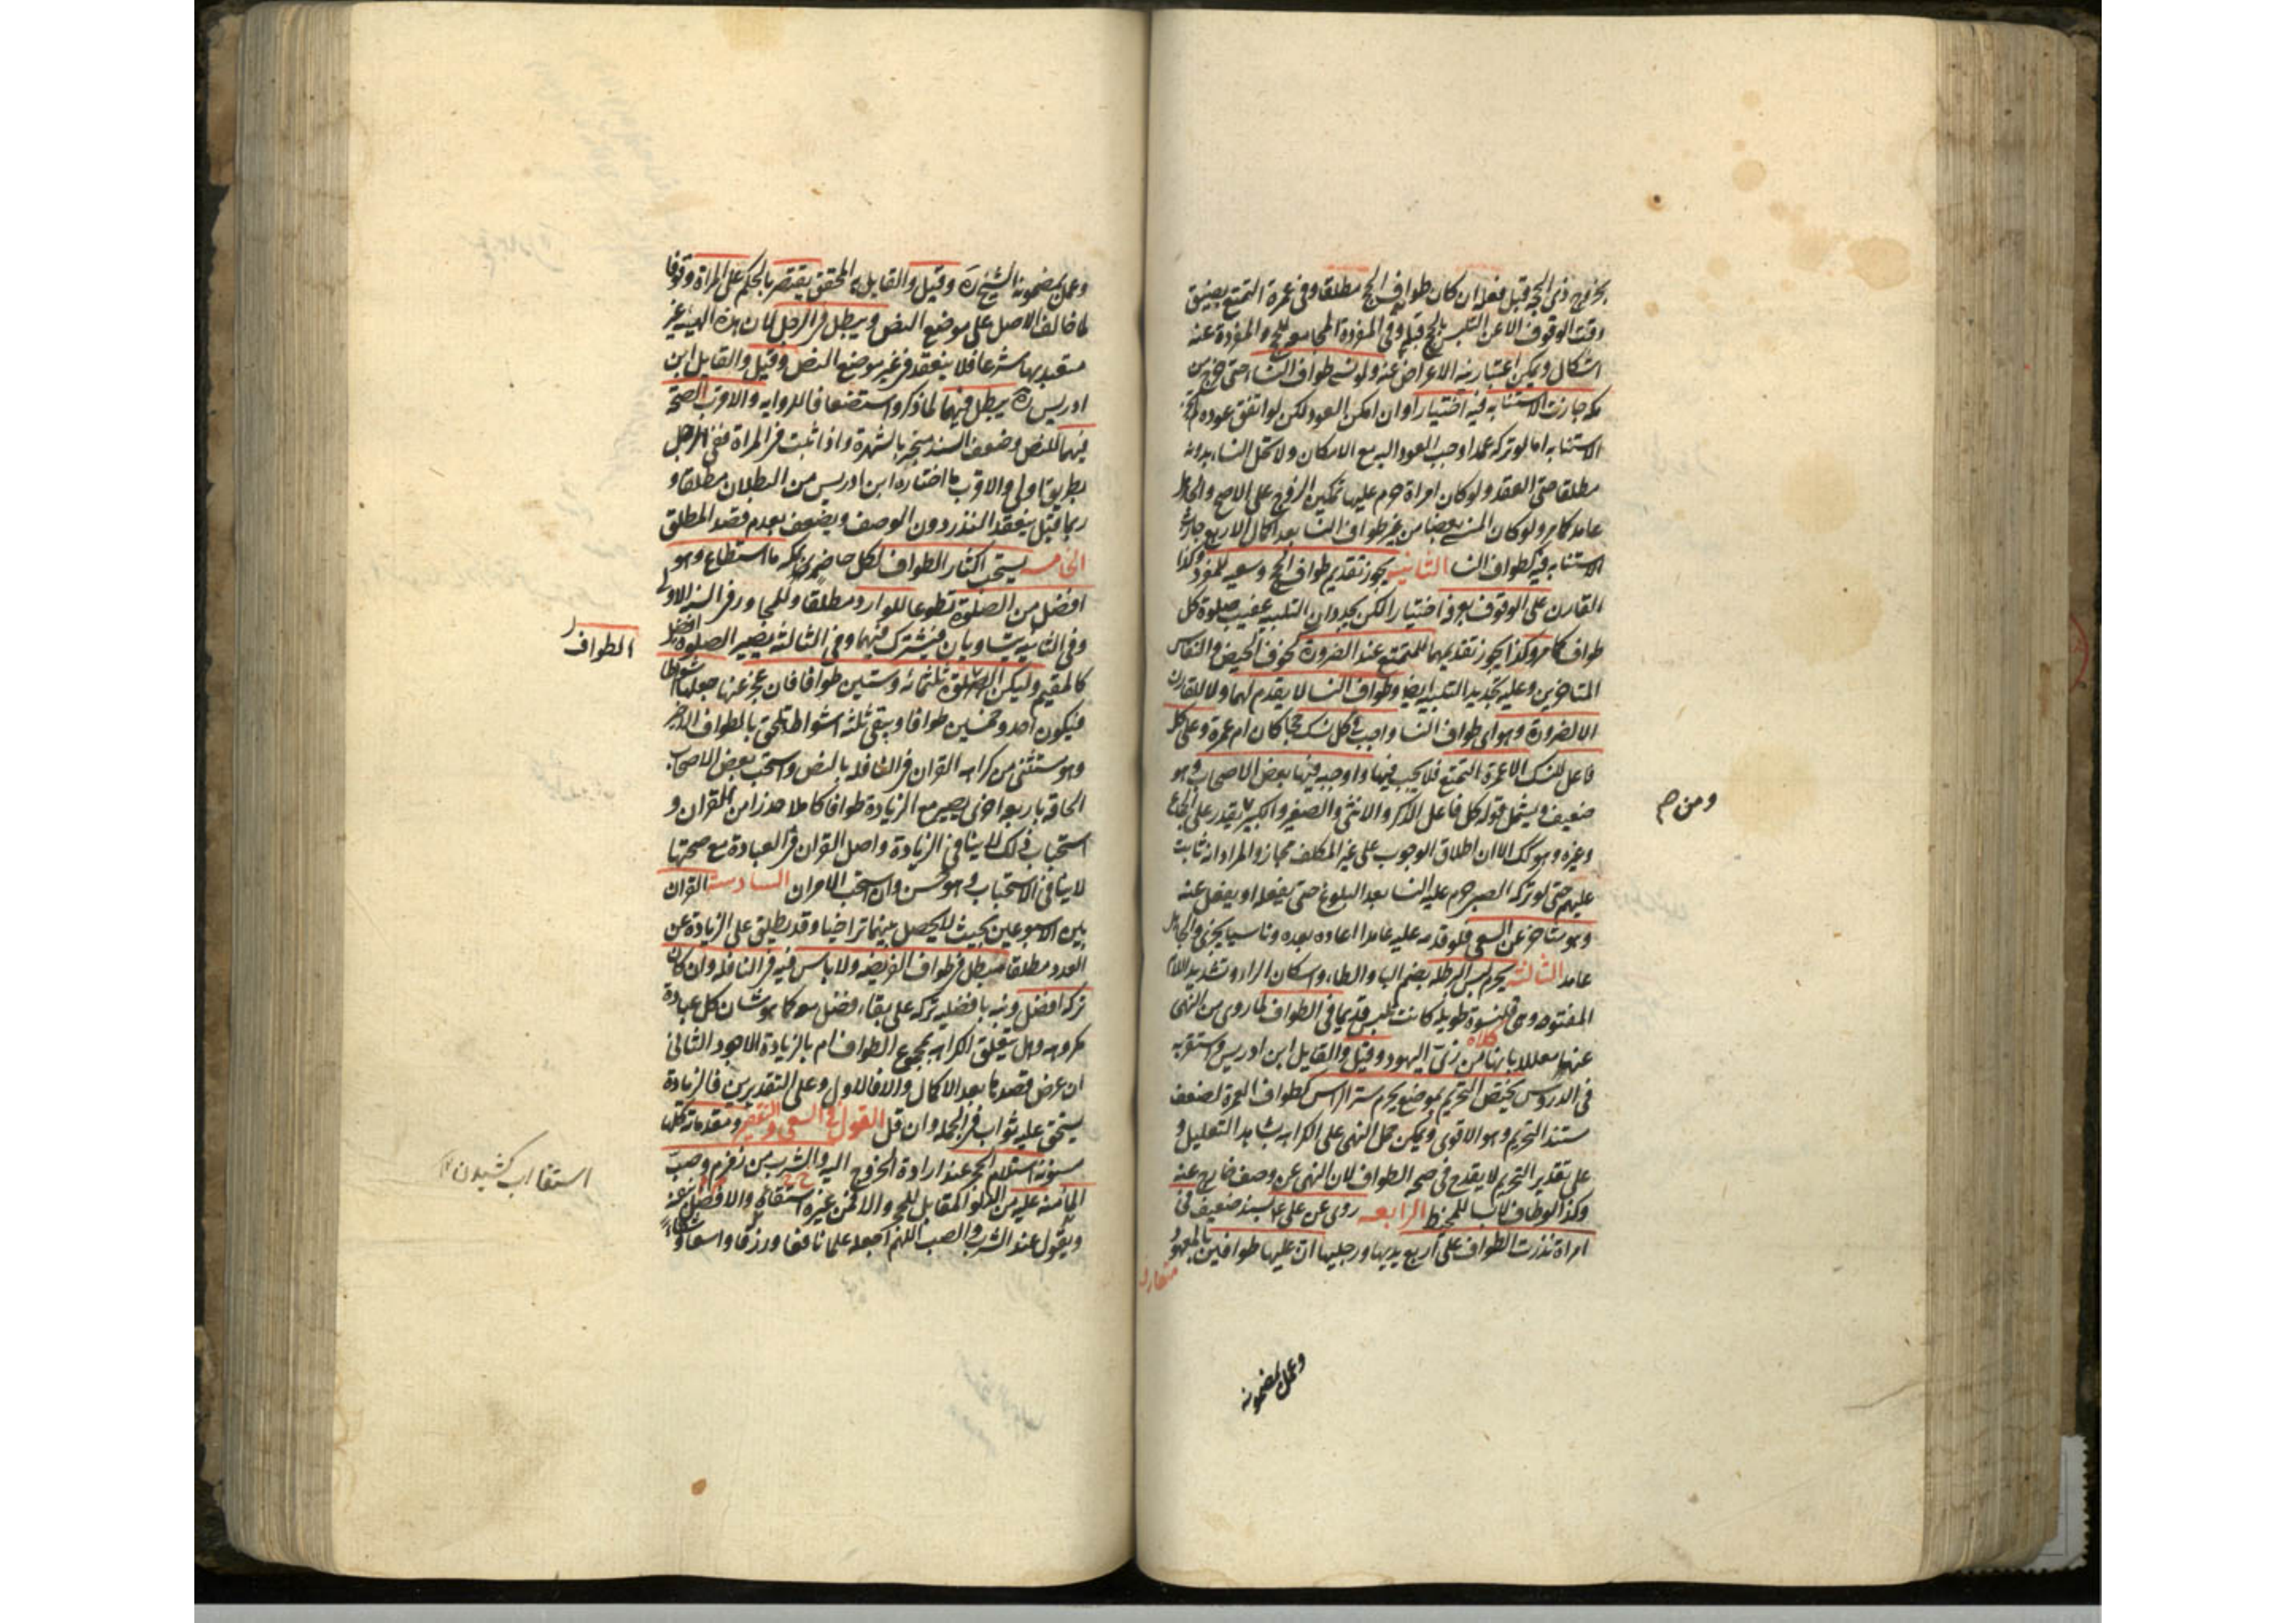 بخروج ذی الحجة قبل فعله ان كان طواف الحج مطلقا وفی عمرة التمتع بضيق
وقت الوقوف الا عن التلبس بالحج قبله وفی المفردة المجامعة للحج والمفردة عنه
اشكال ويمكن اعتبار نية الاعراض عنه ولو نسی طواف النساء حتى خرج من
مكه جازت الاستنابه فيه اختيارا وان امكن العود لكن لو اتفق عوده لم يجز
الاستنابه اما لو تركه عمدا وجب العود اليه مع الامكان ولا تحل النساء بدونه
مطلقا حتى العقد ولو كان امراة حرم عليها تمكين الزوج على الاصح والجاهل
عامد كما مر ولو كان المنسی بعضا من غير طواف النسا بعد اكمال الاربع جازت
الاستنابه فيه كطواف النسا الثانية يجوز تقديم طواف الحج وسعيه للمفرد وكذا
القارن على الوقوف بعرفة اختيارا لكن يجددان التلبيه عقيب صلوة كل
طواف كما مر وكذا يجوز تقديمهما للمتمتع عند الضرورة كخوف الحيض والنفاس
المتاخرين وعليه تجديد التلبيه ايضا وطواف النسا لا يقدم لهما ولا للقارن
الا لضرورة وهو ای طواف النسا واجب فی كل نسك حجا كان ام عمرة وعلى كل
فاعل للنسك الا عمرة التمتع فلا يجب فيها واوجبه فيها بعض الاصحاب وهو
ضعيف ويشمل قوله كل فاعل الذكر والانثى والصغير والكبير يقدر على الجماع
ومن م
وغيره وهو كك الا ان اطلاق الوجوب على غير المكلف مجاز والمراد انه ثابت
عليهم حتى لو تركه الصبی حرم عليه النسا بعد البلوغ حتى يفعله او يفعل عنه
وهو متاخر عن السعی فلو قدمه عليه عامدا اعاده بعده وناسيا يجزی والجاهل
عامد الثالثة يحرم لبس البرطله بضم البا والطاء واسكان الراء وتشديد اللام
المفتوحه وهی قلنسوة طويلة كانت تلبس قديما فی الطواف لما روی من النهی
كلاه
عنها معللا بانها من زی اليهود وقيل والقايل ابن ادريس واستقربه
فی الدروس يختص التحريم بموضع يحرم ستر الراس كطواف العمرة لضعف
مستند التحريم وهو الاقوى ويمكن حمل النهی على الكراهه بشاهد التعليل و
على تقدير التحريم لا يقدح فی صحه الطواف لان النهی عن وصف خارج عنه
وكذا لو طاف لابسا للمخيط الرابعه روی عن علی ع بسند ضعيف فی
امراة نذرت الطواف على اربع يديها ورجليها ان عليها طوافين بالمعهود
وعمل بمضمونه
وعمل بمضمونه الشيخ ره وقيل والقايل به المحقق يقتصر بالحكم على المراة وقوفا
لما خالف الاصل على موضع النص ويبطل فی الرجل لان هذه الهيئه غير
متعبد بها شرعا فلا ينعقد فی غير موضع النص وقيل والقايل ابن
ادريس ره يبطل فيهما لما ذكر واستضعافا للروايه والاقرب الصحة
فيهما للنص وضعف السند منجبر بالشهرة واذا ثبت فی المراة ففی الرجل
بطريق اولی والاقوى ما اختاره ابن ادريس من البطلان مطلقا و
ربما قيل ينعقد النذر دون الوصف ويضعف بعدم قصد المطلق
الخامسه يستحب اكثار الطواف لكل حاضر بمكه ما استطاع وهو
افضل من الصلوة تطوعا للوارد مطلقا وللمجاور فی السنه الاولی
وفی الثانيه يتساويان فيشترك فيهما وفی الثالثه يصير الصلوة افضل
الطواف
كالمقيم وليكن ثلثمائه وستين طوافا فان عجز عنها جعلها اشواطا
فيكون احد وخمسين طوافا ويبقى ثلثه اشواط تلحق بالطواف الاخير
وهو مستثنى من كراهه القران فی النافله بالنص واستحب بعض الاصحاب
الحاقه باربعه اخری ليصير مع الزيادة طوافا كاملا حذرا من القران و
استحباب ذلك لا ينافی الزيادة واصل القران فی العبادة مع صحتها
لا ينافی الاستحباب وهو حسن وان استحب الامران السادسة القران
بين الاسبوعين بحيث لا يحصل بينهما تراخيا وقد يطلق على الزيادة عن
العدد مطلقا مبطل فی طواف الفريضه ولا باس فيه فی النافله وان كان
تركه افضل ونبه بافضليه تركه على بقاء فضل معه كما هو شان كل عبادة
مكروهه وهل يتعلق الكراهه بمجموع الطواف ام بالزيادة الاجود الثانی
ان عرض قصدها بعد الاكمال والا فالاول وعلى التقديرين فالزيادة
يستحق عليه ثواب فی الجمله وان قل القول فی السعی والتقصير ومقدماته كلها
مسنونة استلام الحجر عند ارادة الخروج اليه والشرب من زمزم وصب
استقا اب كشيدن ١٢
الماء منه عليه من الدلو المقابل للحجر والا فمن غيره والافضل استقاؤه
ويقول عند الشرب والصب اللهم اجعله علما نافعا ورزقا واسعا وشفاء